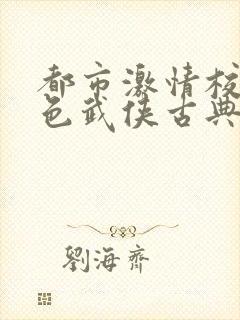 都市激情校
色武侠古典
劉海齊